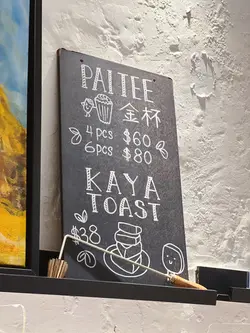 PAITEE
金杯
4 pcs $60
6 pcs $80
KAYA
TOAST
$38